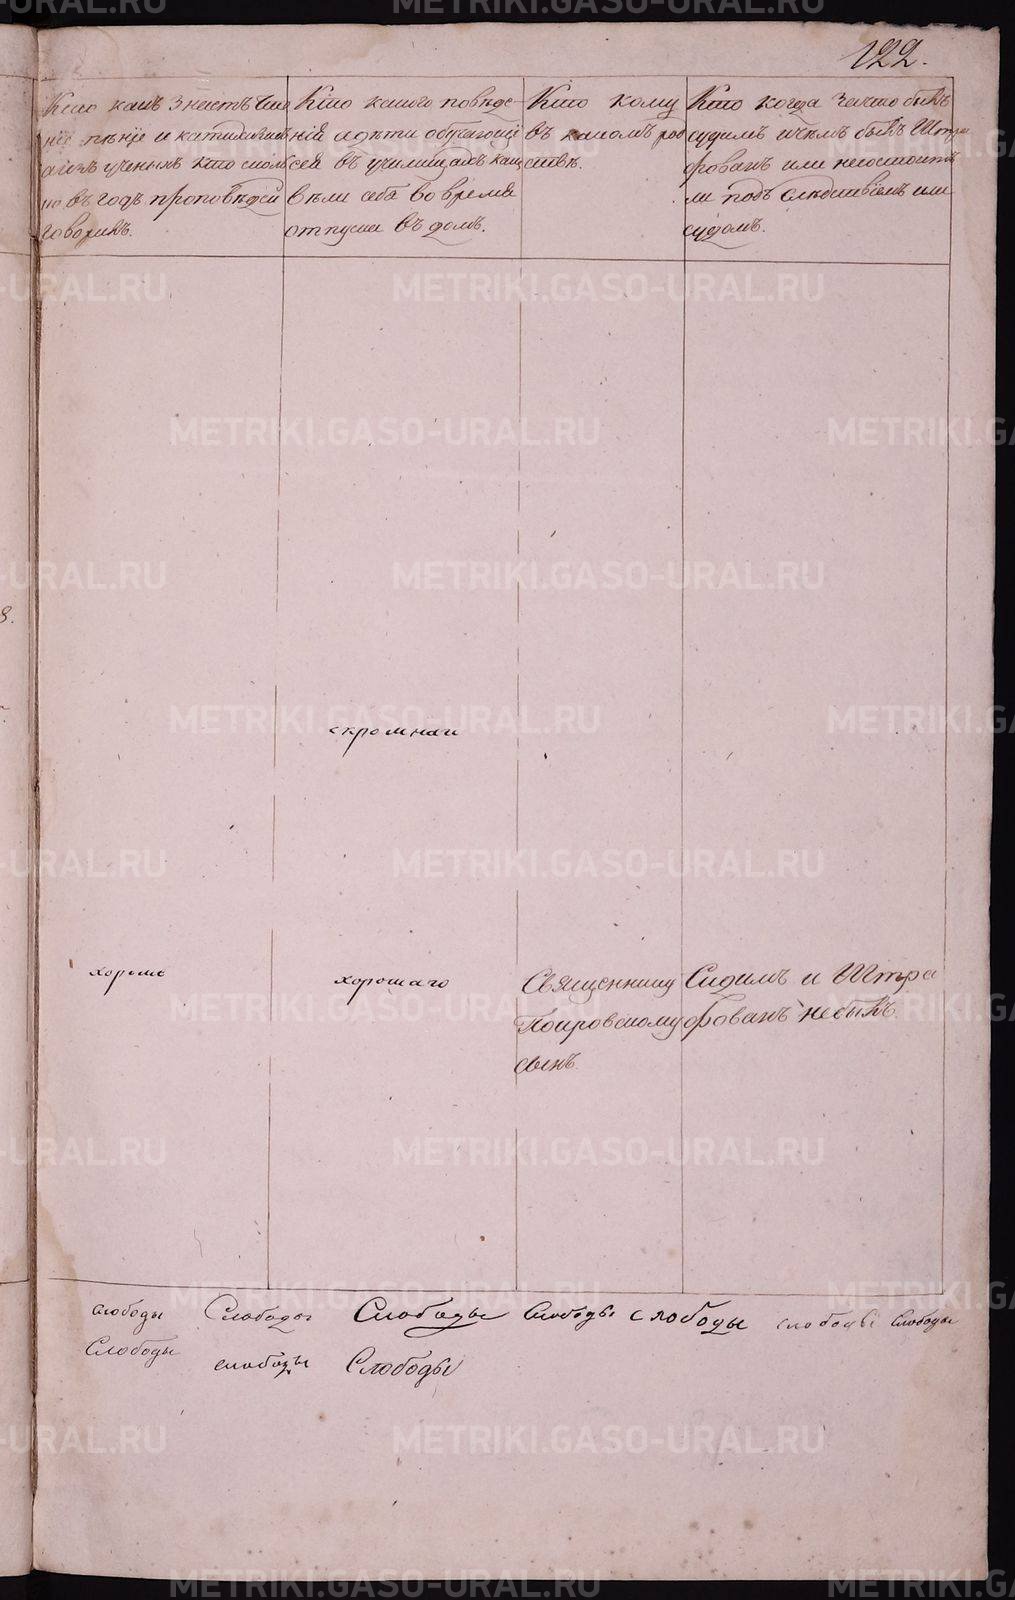 122.
Кто какъ знаетъ чте
ніе пѣніе и катихизисъ
а изъ ученыхъ кто сколь
ко въ годъ проповѣдей
говорилъ.
Кто какого поведе
нія и дѣти обучающіе
ся въ училищахъ как
вели себя во время
отпуска въ домъ.
Кто кому
въ какомъ род
ствѣ.
Кто когда за что былъ
судимъ и чѣмъ былъ Штра
фованъ или не состоитъ
ли подъ слѣдствіемъ или
судомъ.
скромнаи
хорошь
хорошаго
Священнику
Покровскому
сынъ
Судимъ и Штра
фованъ не былъ.
слободы Слободы Слободы Слободы слободы слободы Слободы
Слободы слободы Слободы
METRIKI.GASO-URAL.RU